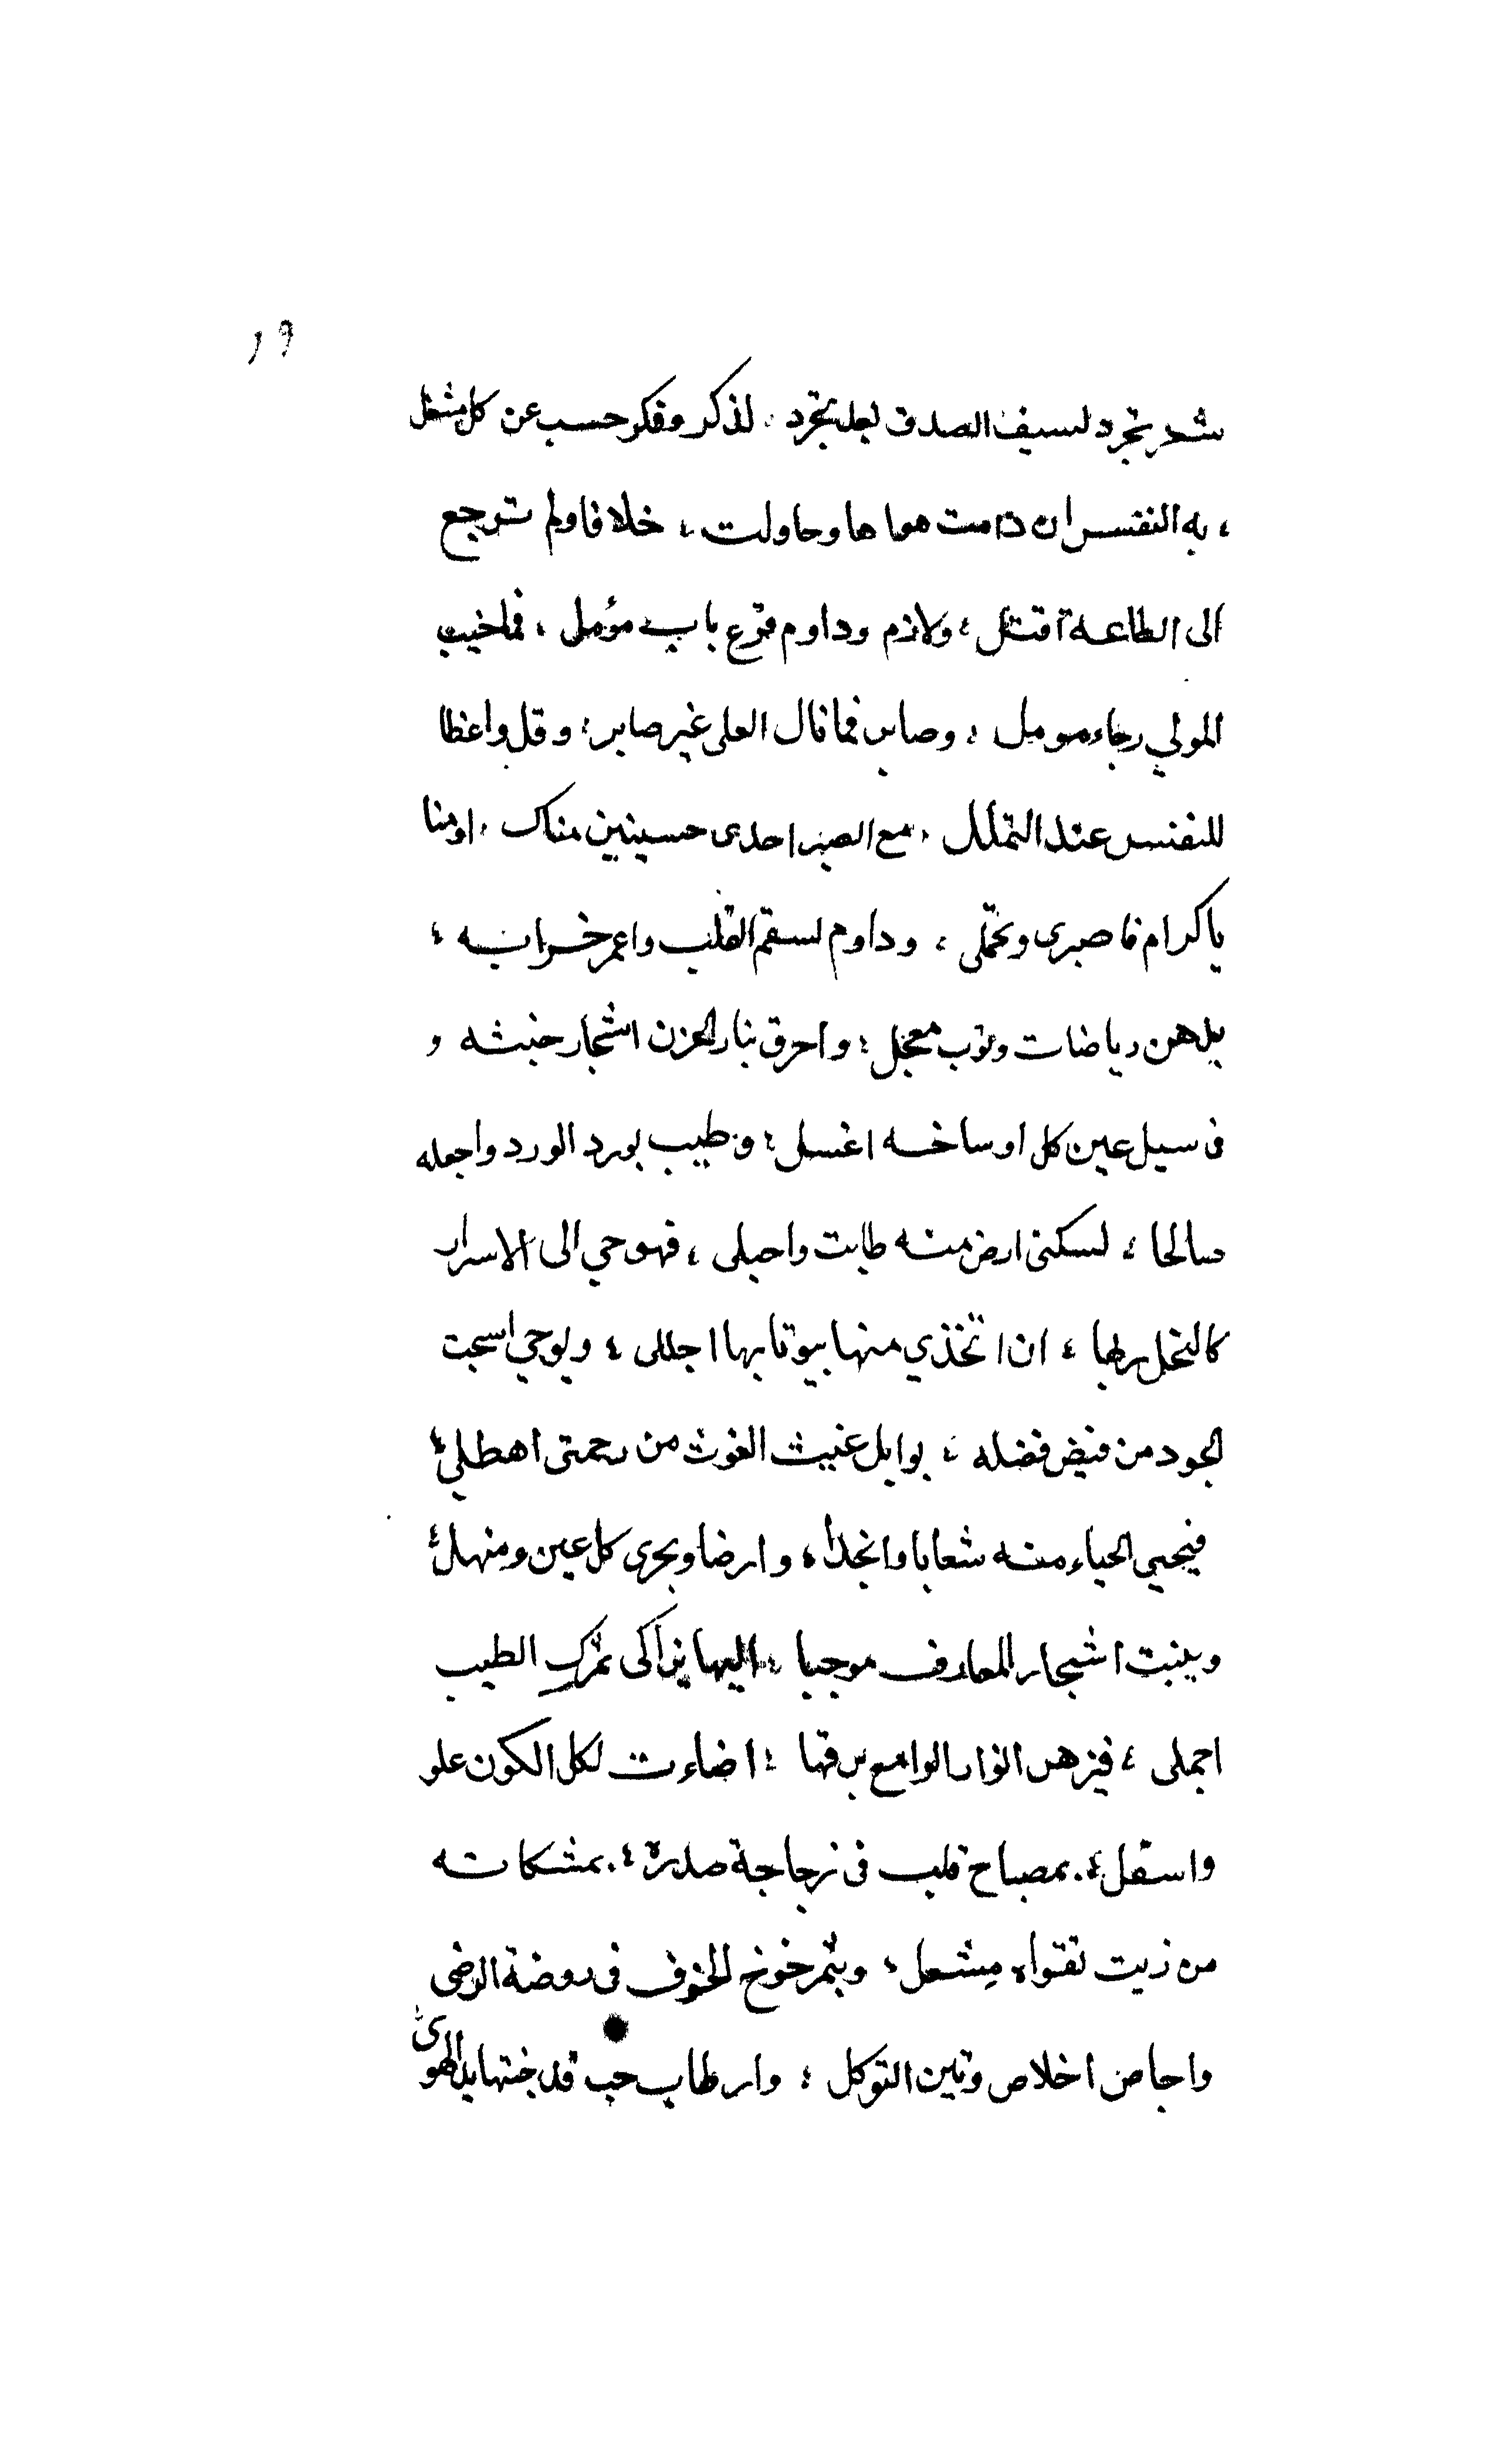 ١٩
شد تجرد لسيف الصدق لعل تجرد ، لذكر وفكر حسب عن كل مشغل
، به النفس ان رامت هواها وحاولت ، خلافا ولم ترجع
الى الطاعة اقتل ، ولازم وداوم قرع باب مؤمل ، فما خيب
المولي رجاء مومل ، وصابر فما نال العلى غير صابر ، وقل واعظا
للنفس عند التململ ، مع الصبر احدى حسنيين مناك ، او منا
باكرام فاصبرى وتحملى ، وداوم لسقم القلب واعمر خرابه ،
بدهن رياضات وتوب معجل ، واحرق بنار الحزن اشجار خبثه و
فى سيل عين كل اوساخه اغسل ، وطيب بورد الورد واجعله
صالحا ، لسكنى ارض منه طابت واحبلى ، فهوحي الى الاسرار
كالنحل ربها ، ان اتخذي منها بيوتا بها اجللى ، ويوحي اسحبت
الجود من فيض فضله ، بوابل غيث الغوث من رحمتى اهطلي ،
فيحيى الحياء منه شعابا وانجدا ، وارضا ويجرى كل عين ومنهل ،
وينبت اشجار المعارف موجبا ، اليها بن اكى ثمرك الطيب
اجملى ، فيزهر انوار الوامع برقها ، اضاءت لكل الكون علو
واسفل ، بمصباح قلب فى زجاجة صدره ، بمشكاته
من زيت تقواه مشعل ، ويثمر خوخ الخوف فى روضة الرضى
واجاص اخلاص وتين التوكل ، وارطاب حب قد جنتها يد الهوى